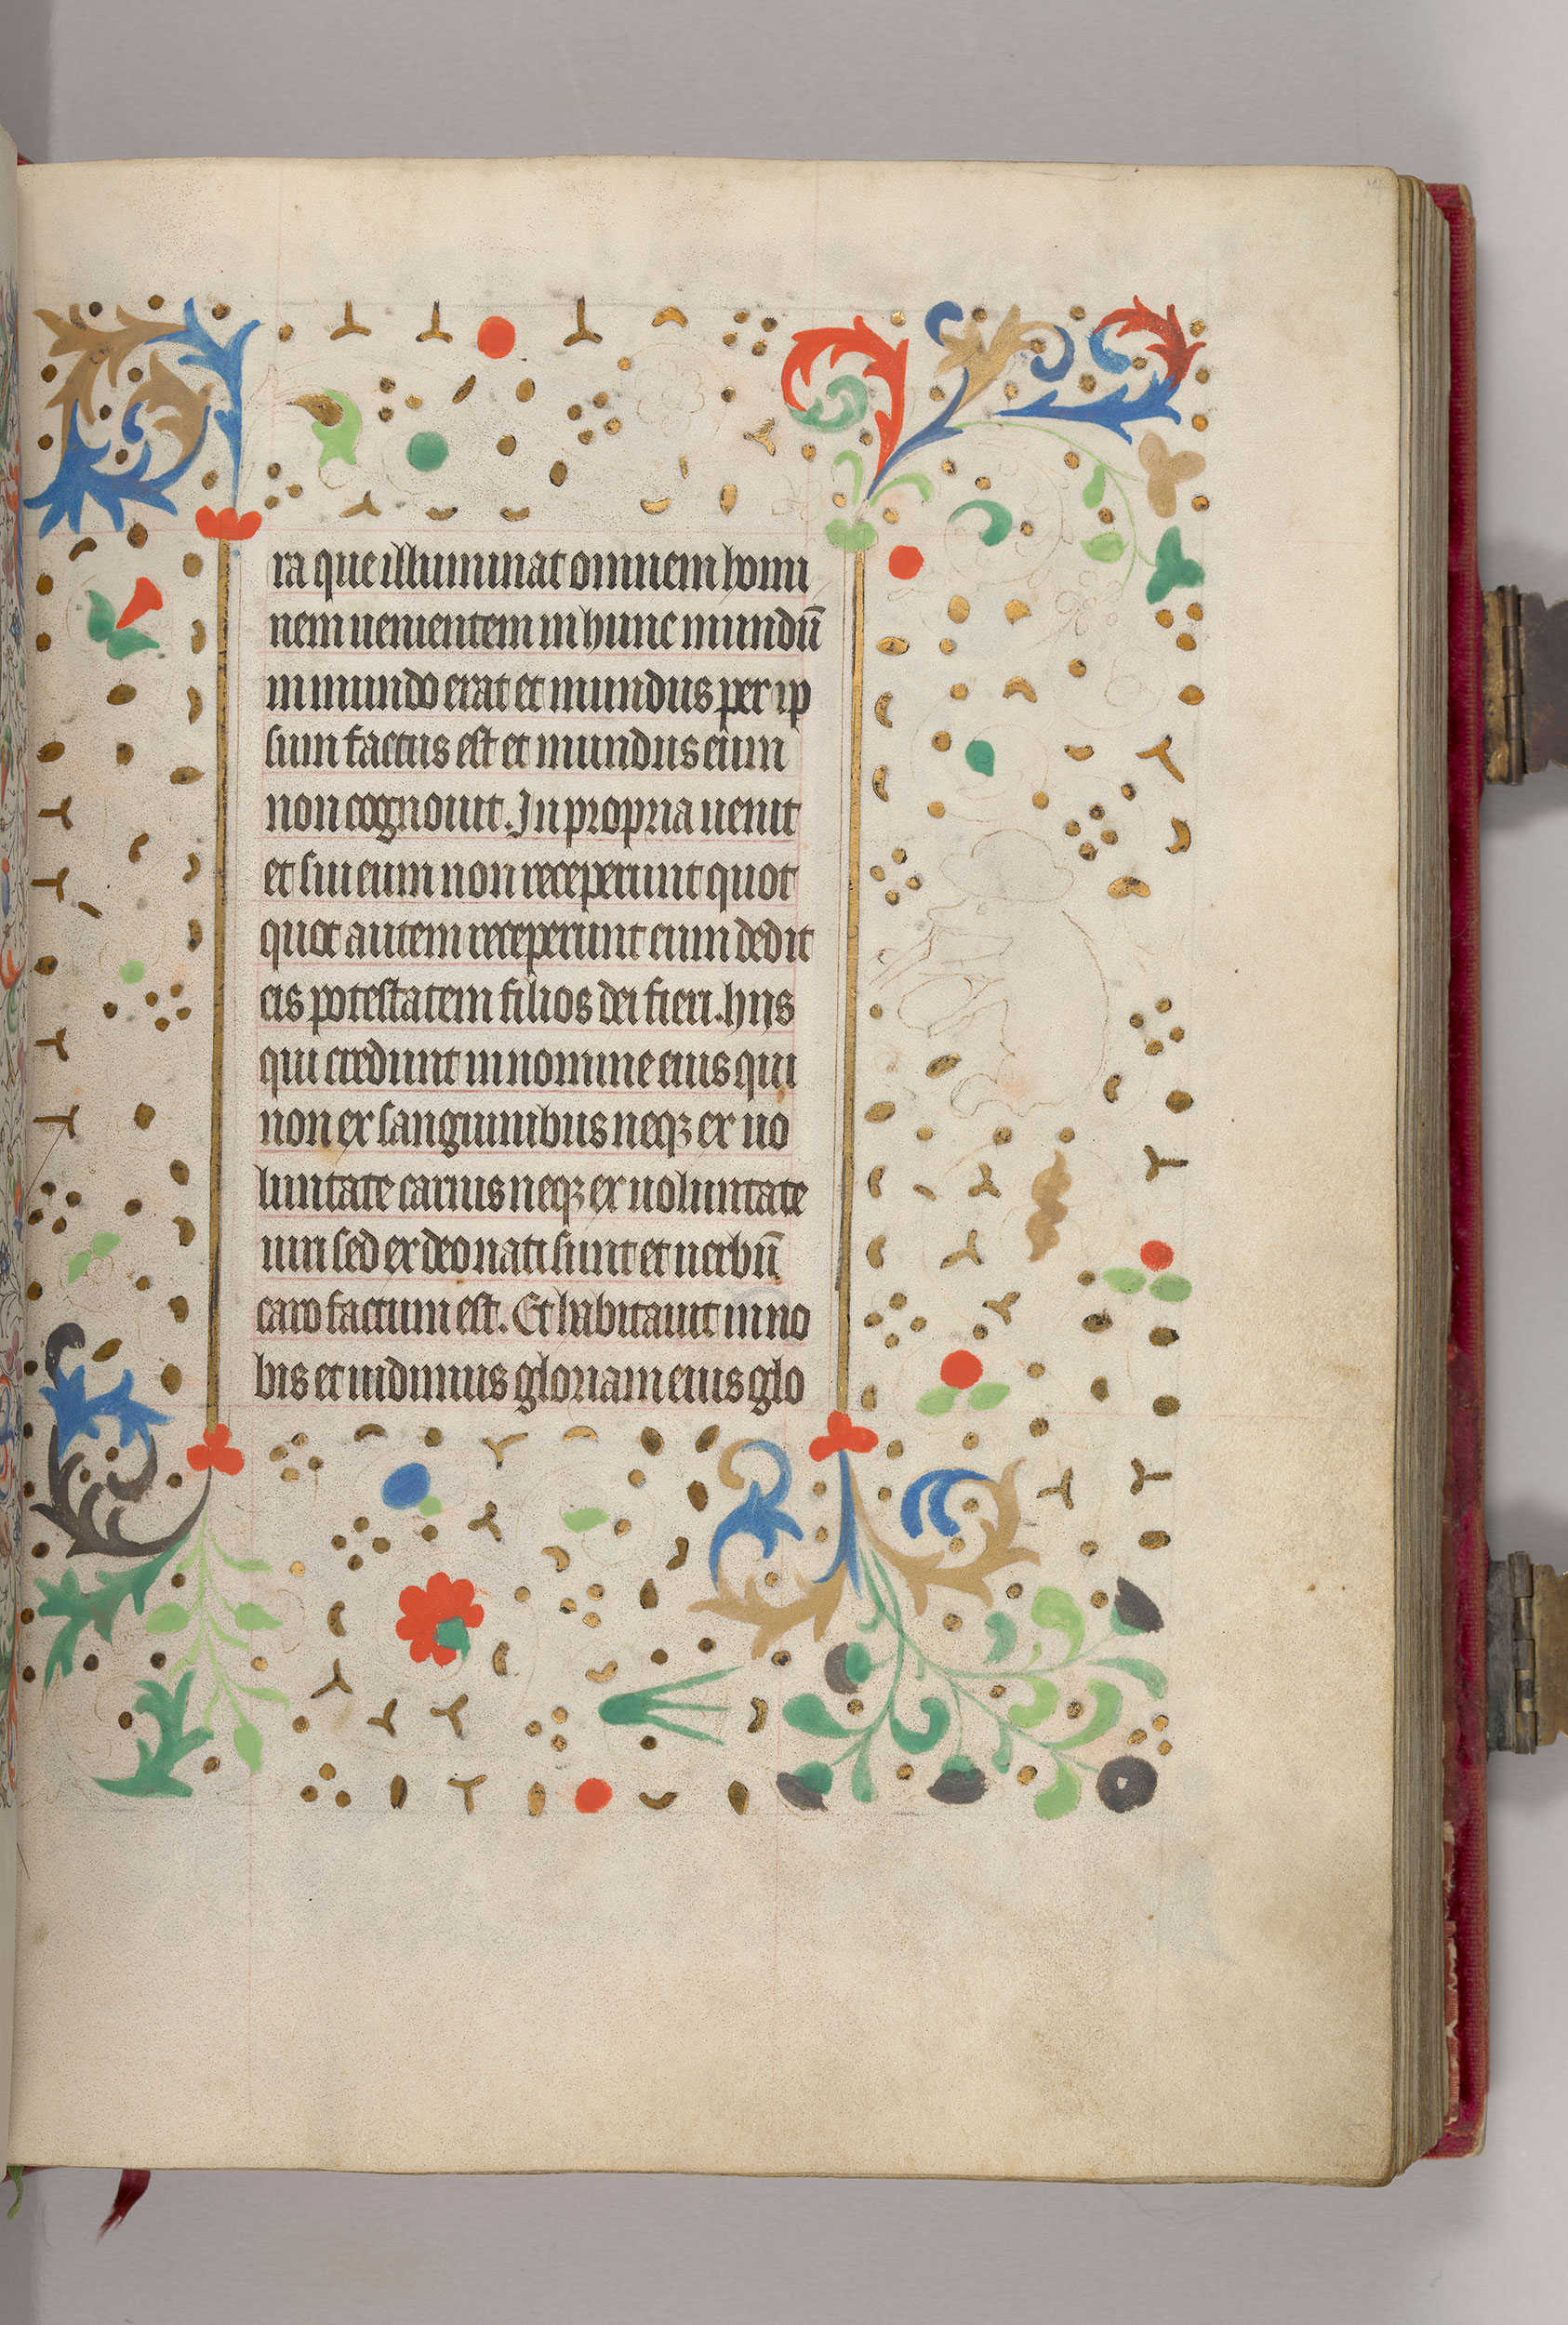 ra que illuminat omnem homi
nem uenientem in hunc mundū
in mundo erat et mundus per ip
sum factus est et mundus eum
non cognouit. In propria uenit
et sui eum non receperunt quot
quot autem receperunt eum dedit
eis potestatem filios dei fieri. hiis
qui credunt in nomine eius qui
non ex sanguinibus neqꝫ ex uo
luntate carnis neqꝫ ex uoluntate
uiri sed ex deo nati sunt et uerbū
caro factum est. Et habitauit in no
bis et uidimus gloriam eius glo